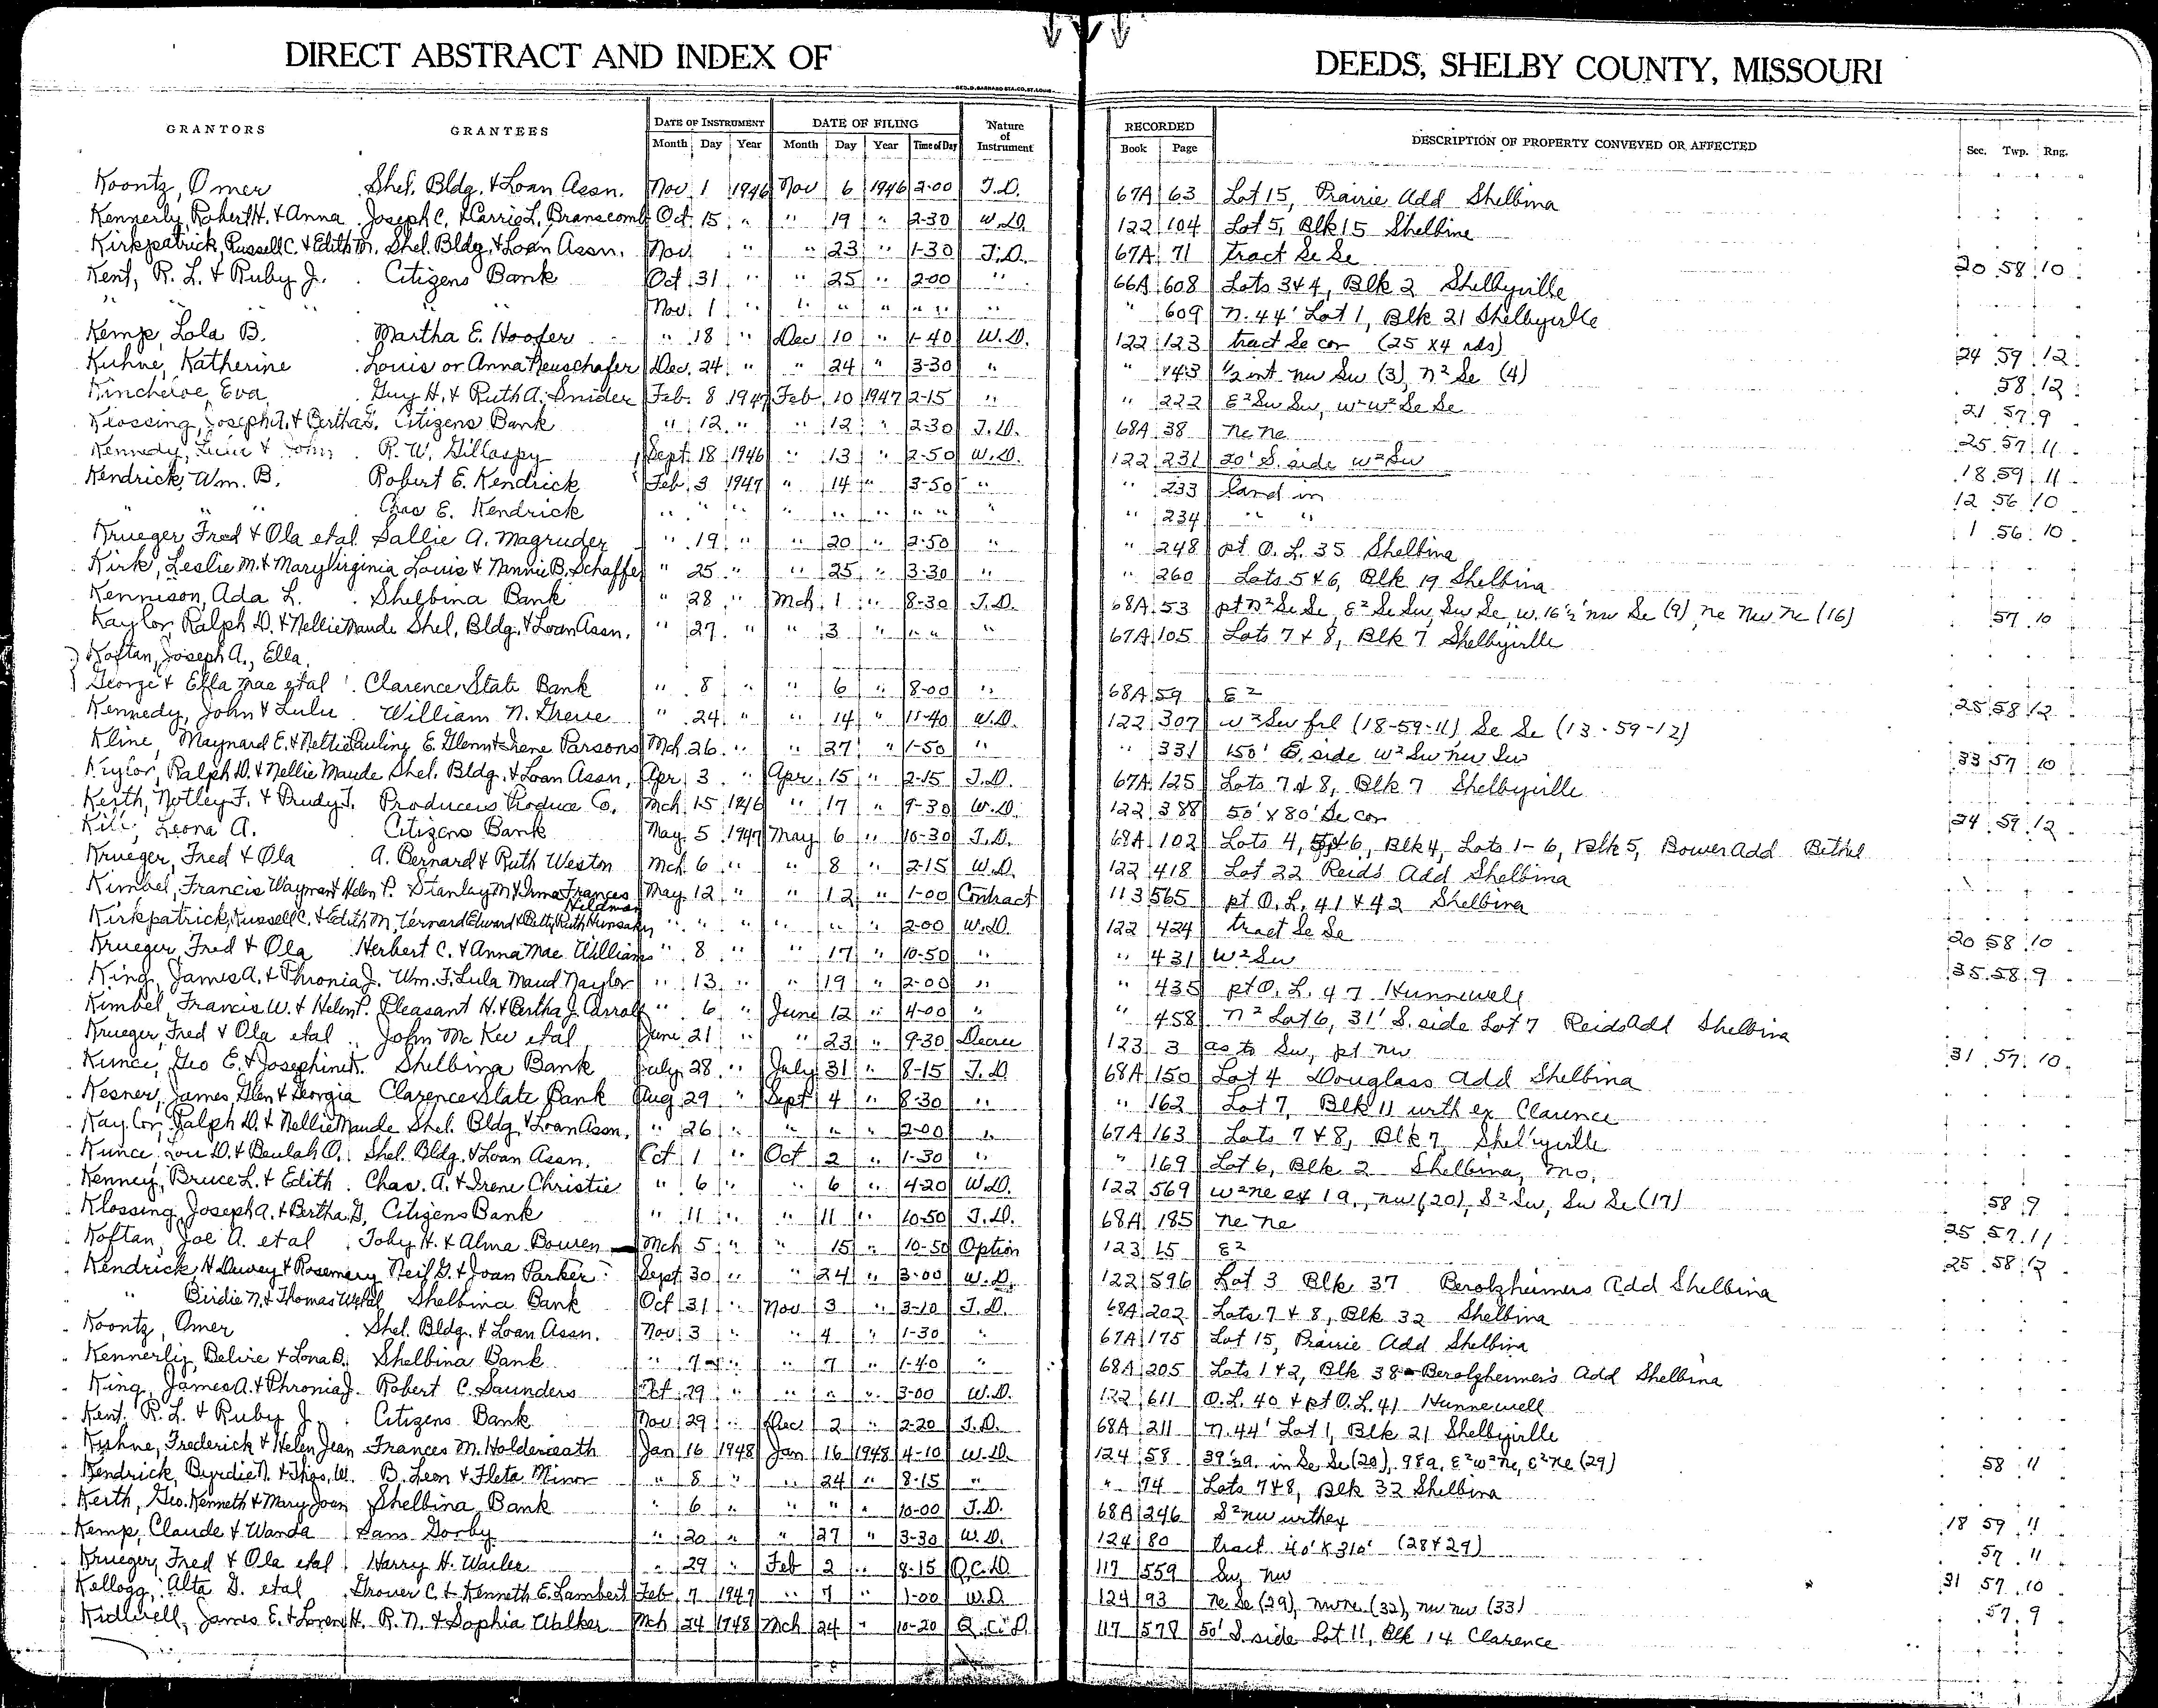 DIRECT ABSTRACT AND INDEX OF DEEDS, SHELBY COUNTY, MISSOURI
GEO. D. BARNARD STA. CO. ST. LOUIS
GRANTORS GRANTEES DATE OF INSTRUMENT DATE OF FILING Nature of Instrument RECORDED DESCRIPTION OF PROPERTY CONVEYED OR AFFECTED Sec. Twp. Rng.
Month Day Year Month Day Year Time of Day Book Page
Koontz, Omer Shel. Bldg. & Loan Assn. Nov 1 1946 Nov 6 1946 2-00 T.D. 67A 63 Lot 15, Prairie Add Shelbina
Kennerly, Robert H. & Anna Joseph C. & Carrie L. Branscomb Oct 15 " " 19 " 2-30 W.D. 122 104 Lot 5, Blk 15 Shelbina
Kirkpatrick, Russell C. & Edith M. Shel. Bldg. & Loan Assn. Nov " " 23 " 1-30 T.D. 67A 71 tract Se Se 20 58 10
Kent, R. L. & Ruby J. Citizens Bank Oct 31 " " 25 " 2-00 " 66A 608 Lots 3 & 4, Blk 2 Shelbyville
" " " Nov. 1 " " " " " " " 609 N. 44' Lot 1, Blk 21 Shelbyville
Kemp, Lola B. Martha E. Hoofer " 18 " Dec 10 " 1-40 W.D. 122 123 tract Se cor (25 x 4 rds) 24 59 12
Kuhne, Katherine Louis or Anna Neuschafer Dec. 24 " " 24 " 3-30 " " 143 1/2 int nw Sw (3), n² Se (4) 58 12
Kincheloe, Eva Guy H. & Ruth A. Snider Feb. 8 1947 Feb 10 1947 2-15 " " 222 E² Sw Sw, w² w² Se Se 21 57 9
Klossing, Joseph A. & Bertha G. Citizens Bank " 12 " " 12 " 2-30 T.D. 68A 38 ne ne 25 57 11
Kennedy, & John R. W. Gillaspy Sept 18 1946 " 13 " 2-50 W.D. 122 231 20' S. side w² Sw 18 59 11
Kendrick, Wm. B. Robert E. Kendrick Feb 3 1947 " 14 " 3-50 " " 233 land in 12 56 10
" " Chas E. Kendrick " " " " " " " " " " 234 " " 1 56 10
Krueger, Fred & Ola etal Sallie A. Magruder " 19 " " 20 " 2-50 " " 248 pt O. L. 35 Shelbina
Kirk, Leslie M. & Mary Virginia Louis & Nannie B. Schaffer " 25 " " 25 " 3-30 " " 260 Lots 5 & 6, Blk 19 Shelbina
Kennison, Ada L. Shelbina Bank " 28 " Mch 1 " 8-30 T.D. 68A 53 pt n² Se Se, E² Se Sw, Sw Se, w. 16½' nw Se (9), ne nw ne (16) 57 10
Kaylor, Ralph D. & Nellie Maude Shel. Bldg. & Loan Assn. " 27 " " 3 " " " " 67A 105 Lots 7 & 8, Blk 7 Shelbyville
Koftan, Joseph A., Ella,
George & Effa Mae etal Clarence State Bank " 8 " " 6 " 8-00 " 68A 59 E² 25 58 12
Kennedy, John & Lulu William N. Greve " 24 " " 14 " 11-40 W.D. 122 307 w² Sw frl (18-59-11) Se Se (13-59-12)
Kline, Maynard E. & Nettie Pauline E. Glenn & Irene Parsons Mch 26 " " 27 " 1-50 " " 331 150' E. side w² Sw nw Sw 33 57 10
Kaylor, Ralph D. & Nellie Maude Shel. Bldg. & Loan Assn. Apr. 3 " Apr 15 " 2-15 T.D. 67A 125 Lots 7 & 8, Blk 7 Shelbyville
Keith, Notley F. & Prudy F. Producers Produce Co. Mch 15 1946 " 17 " 9-30 W.D. 122 388 50' x 80' Se cor 24 59 12
Leona A. Citizens Bank May 5 1947 May 6 " 10-30 T.D. 68A 102 Lots 4, 5, & 6, Blk 4, Lots 1-6, Blk 5, Bower Add Bethel
Krueger, Fred & Ola A. Bernard & Ruth Weston Mch 6 " " 8 " 2-15 W.D. 122 418 Lot 22 Reids Add Shelbina
Kimbel, Francis Wayman & Helen P. Stanley M. & Irma Frances May 12 " " 12 " 1-00 Contract 113 565 pt O. L. 41 & 42 Shelbina
Kirkpatrick, Russell C. & Edith M. Edward & Betty Ruth Hunsaker " " " " " " 2-00 W.D. 122 424 tract Se Se 20 58 10
Krueger, Fred & Ola Herbert C. & Anna Mae Williams " 8 " " 17 " 10-50 " " 431 W² Sw 35 58 9
King, James A. & Phronia J. Wm. F. Lula Maud Naylor " 13 " " 19 " 2-00 " " 435 pt O. L. 47 Hunnewell
Kimbel, Francis W. & Helen P. Pleasant H. & Bertha J. Carroll " 6 " June 12 " 4-00 " " 458 n² Lot 6, 31' S. side Lot 7 Reids Add Shelbina
Krueger, Fred & Ola etal John Mc Kee etal June 21 " " 23 " 9-30 Decree 123 3 as to Sw, pt nw 31 57 10
Kunce, Geo E. & Josephine K. Shelbina Bank July 28 " July 31 " 8-15 T.D. 68A 150 Lot 4 Douglass Add Shelbina
Kesner, James Glen & Georgia Clarence State Bank Aug 29 " Sept 4 " 8-30 " " 162 Lot 7, Blk 11 wrth ex Clarence
Kaylor, Ralph D. & Nellie Maude Shel. Bldg. & Loan Assn. " 26 " " " " 2-00 " 67A 163 Lots 7 & 8, Blk 7, Shelbyville
Kunce, Lou D. & Beulah O. Shel. Bldg. & Loan Assn. Oct 1 " Oct 2 " 1-30 " " 169 Lot 6, Blk 2 Shelbina, Mo.
Kenney, Bruce L. & Edith Chas. A. & Irene Christie " 6 " " 6 " 4-20 W.D. 122 569 w² ne ex 1 a., nw (20), S² Sw, Sw Se (17) 58 9
Klossing, Joseph A. & Bertha G. Citizens Bank " 11 " " 11 " 10-50 T.D. 68A 185 ne ne 25 57 11
Koftan, Joe A. etal Toby H. & Alma Bowen Mch 5 " " 15 " 10-50 Option 123 15 E² 25 58 12
Kendrick, H. Dewey & Rosemary Neil G. & Joan Parker Sept. 30 " " 24 " 3-00 W.D. 122 596 Lot 3 Blk 37 Berolzheimers Add Shelbina
" Birdie N. & Thomas W. etal Shelbina Bank Oct 31 " Nov 3 " 3-10 T.D. 68A 202 Lots 7 & 8, Blk 32 Shelbina
Koontz, Omer Shel. Bldg. & Loan Assn. Nov 3 " " 4 " 1-30 " 67A 175 Lot 15, Prairie Add Shelbina
Kennerly, Belvie & Lona B. Shelbina Bank " 7 " " 7 " 1-40 " 68A 205 Lots 1 & 2, Blk 38 Berolzheimer's Add Shelbina
King, James A. & Phronia J. Robert C. Saunders Oct 29 " " " " 3-00 W.D. 122 611 O. L. 40 & pt O. L. 41 Hunnewell
Kent, R. L. & Ruby J. Citizens Bank Nov 29 " Dec 2 " 2-20 T.D. 68A 211 N. 44' Lot 1, Blk 21 Shelbyville
Kuhne, Frederick & Helen Jean Frances M. Holderieath Jan 16 1948 Jan 16 1948 4-10 W.D. 124 58 39½ a. in Se Se (20), 98a, E² w² ne, E² ne (29) 58 11
Kendrick, Byrdie N. & Thos. W. B. Leon & Fleta Minor " 8 " " 24 " 8-15 " " 74 Lots 7 & 8, Blk 32 Shelbina
Keith, Geo. Kenneth & Mary Joan Shelbina Bank " 6 " " " " 10-00 T.D. 68A 246 S² nw wrthex 18 59 11
Kemp, Claude & Wanda Sam Gorby " 20 " " 27 " 3-30 W.D. 124 80 tract 40' x 310' (28 & 29) 57 11
Krueger, Fred & Ola etal Harry H. Wailes " 29 " Feb 2 " 8-15 Q.C.D. 117 559 Sw, nw 31 57 10
Kellogg, Alta G. etal Grover C. & Kenneth E. Lambert Feb 7 1947 " 7 " 1-00 W.D. 124 93 ne Se (29), nw ne (32), nw nw (33) 57 9
Kidwell, James E. & Loren H. R. N. & Sophia Walker Mch 24 1948 Mch 24 " 10-20 Q.C.D. 117 578 50' S. side Lot 11, Blk 14 Clarence